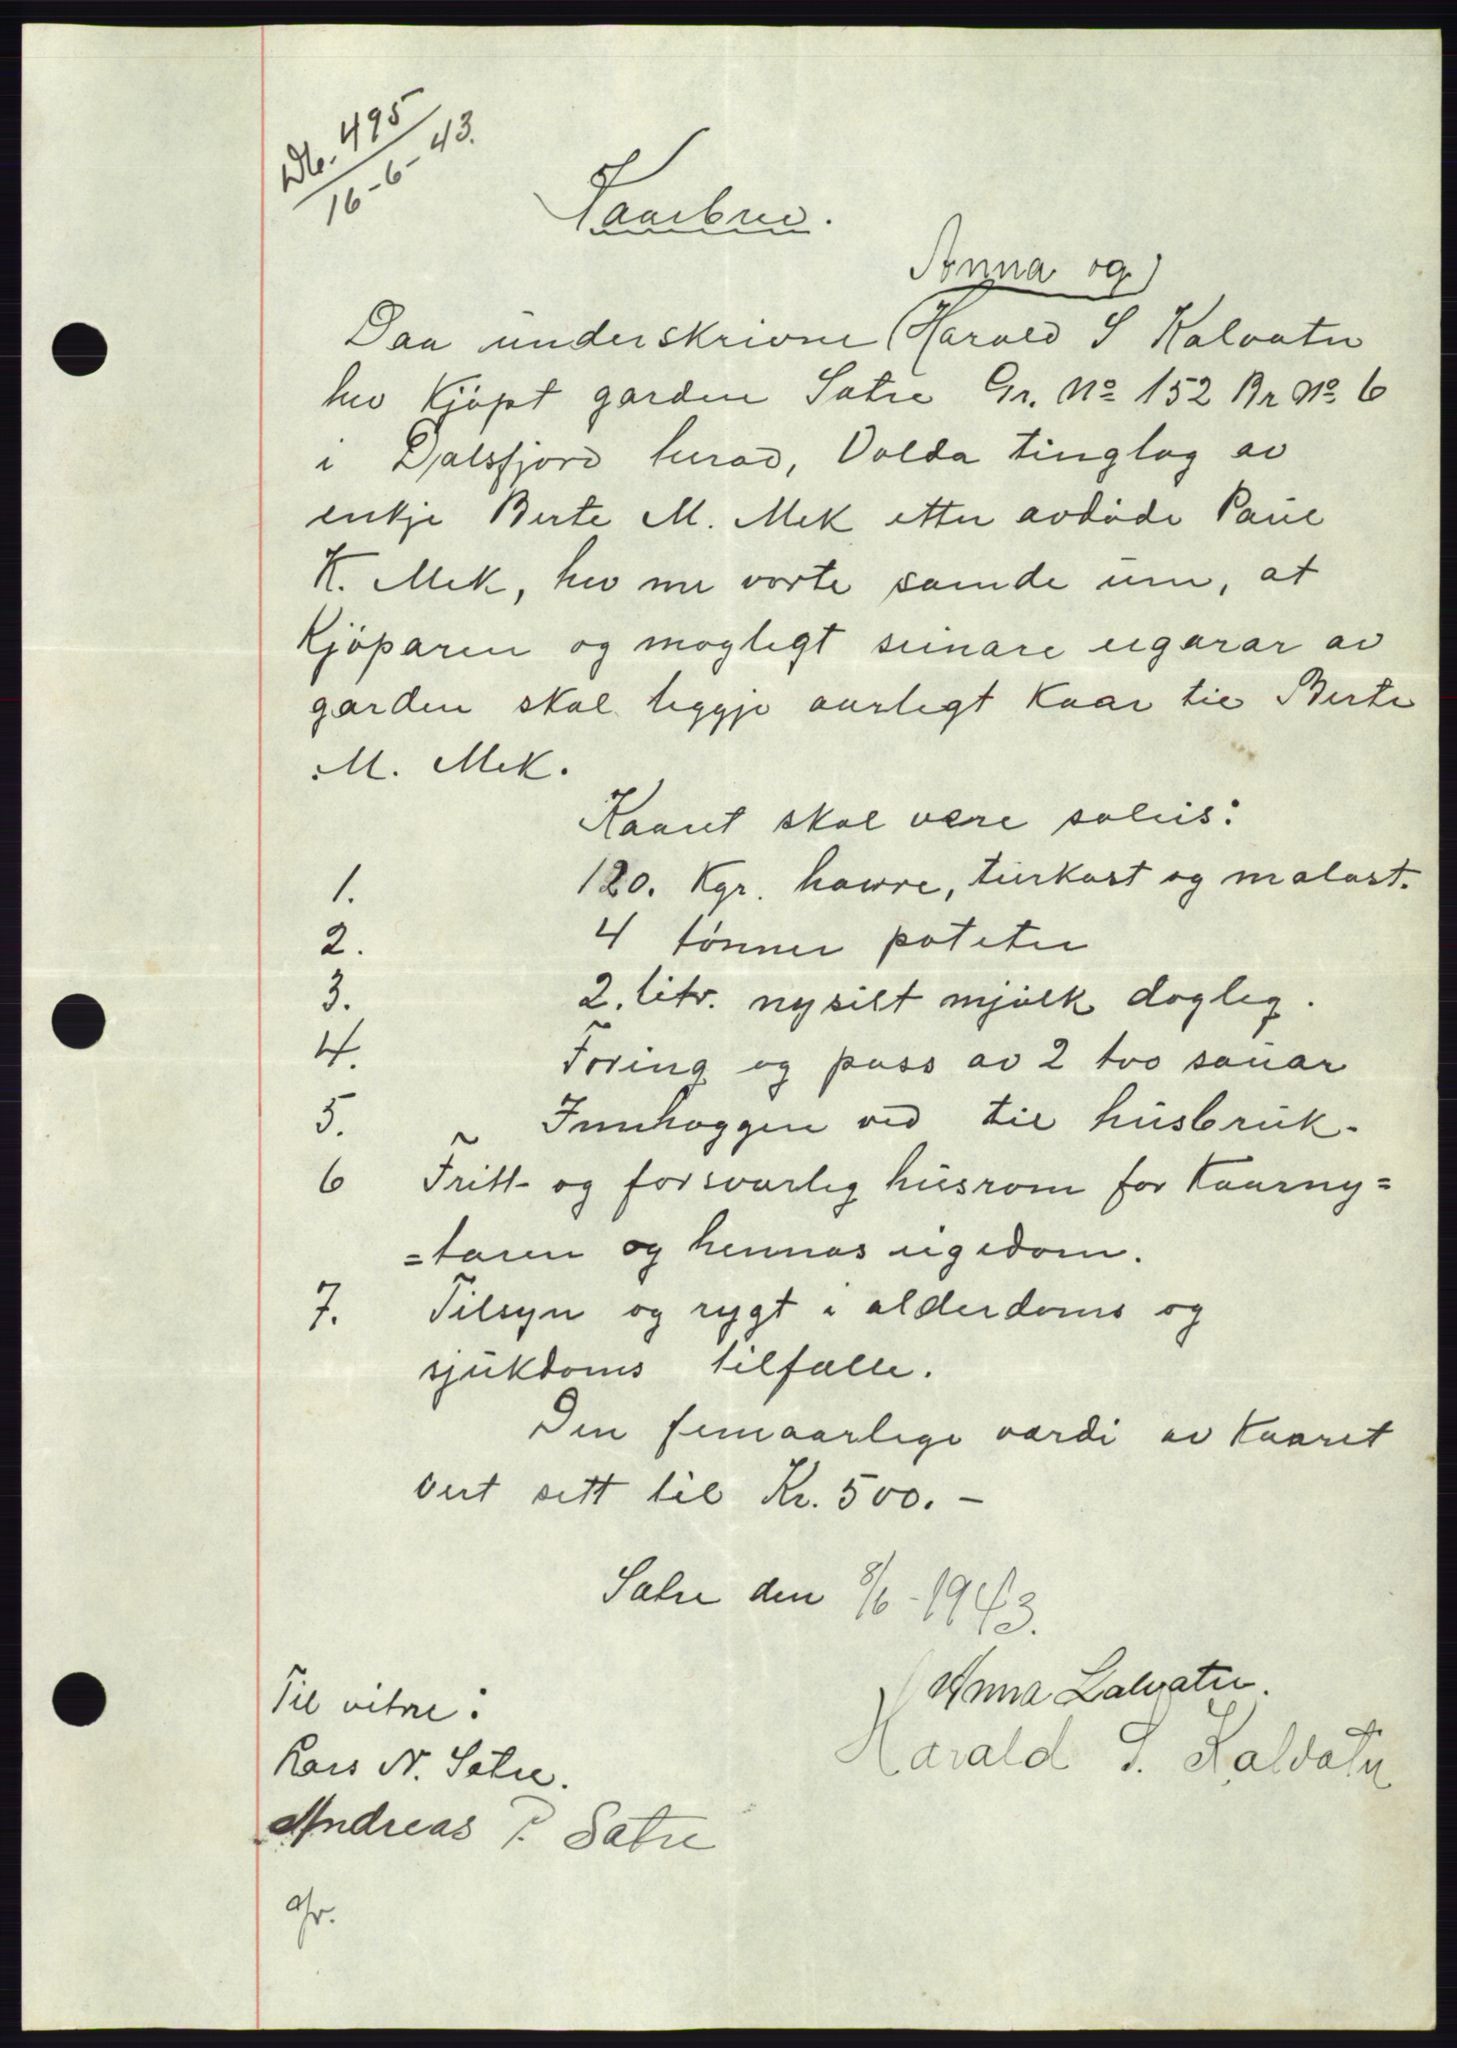 Db. 495
16-6-43.
Kaarbrev.
Anna og
Daa underskrivne Harald S Kalvatn
hev Kjöpt garden Satre Gr. No 152 Br No 6
i Dalsfjord herad, Volda tinglag av
enkje Berte M. Mek etter avdöde Paul
K. Mek, hev me vorte samde um, at
Kjöparen og mogligt seinare eigarar av
garden skal leggje aarlegt Kaar til Berte
M. Mek.
Kaaret skal vere soleis:
1. 120. Kgr. havre, turkast og malast.
2. 4 tönner poteter
3. 2. litr. nysilt mjölk dagleg.
4. Foring og pass av 2 tvo sauar
5. Innhoggen ved til husbruk.
6 Fritt og forsvarleg husrom for Kaarny=
=taren og hennas eigedom.
7. Tilsyn og rygt i alderdoms og
sjukdoms tilfelle.
Den femaarlege verdi av Kaaret
vert sett til Kr. 500.-
Satre den 8/6-1943.
Anna Kalvatn.
Harald S. Kalvatn
Til vitne:
Lars N. Satre.
Andreas P. Satre